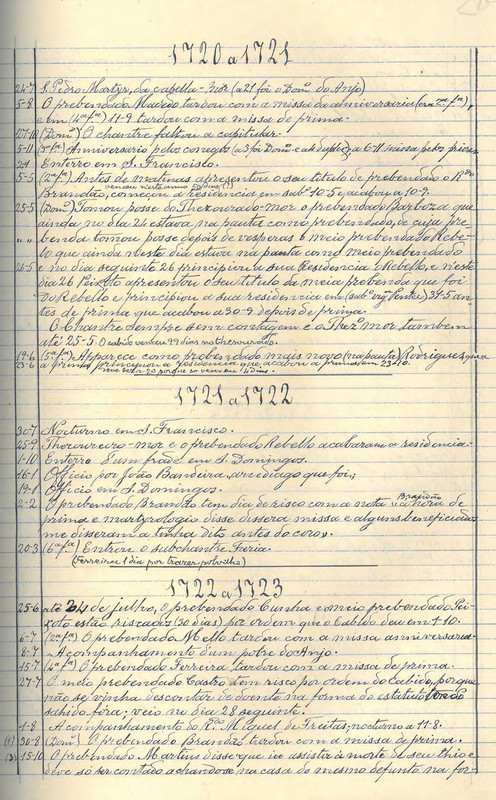 1720 a 1721
24-7 S. Pedro Martyr, da capella-mór (a 21 foi o Domº do Anjo)
5-8 O prebendado Macedo tardou com a missa de anniversario
e em (4ª fª) 11-9 tardou com a missa de prima.
(Domº) O chantre faltou a capitular.
5-11 Anniversario pelos conegos (a 3 foi Domº e a 4 duplex) a 6-11 missa pelos
Enterro em S. Francisco.
5-5 (2ª fª) Antes de matinas apresentou o seu titulo de prebendado o Rdo
venceu neste anno dias
Brandão, começou a residencia em 10-5 e acabou a 10-9.
25-5 (Domº) Tomou posse do Thezourado-mor o prebendado Barboza que
ainda no dia 24 estava na pauta como prebendado, de cuja pre-
" " benda tomou posse depois de vesperas o meio prebendado Rebe-
lo que ainda neste dia estava na pauta como meio prebendado
25-5 e no dia seguinte 26 principiou a sua Residencia o Rebello, e neste
dia 26 Peixoto apresentou o seu titulo da meia prebenda que foi
do Rebello e principiou a sua residencia em 31-5 an-
tes de prima que acabou a 30-9 depois de prima.
O Chantre sempre sem contagem e o Thezº mor tambem
até 25-5. O cabido venceu 99 dias no thesourado.
19-6 (5ª fª) Apparece como prebendado mais novo (na pauta) Rodrigues que
23-6 a prima principiou a residencia que acabou a prima em 23-10.
1721 a 1722
30-7 Nocturno em S. Francisco.
25-9 Thezoureiro-mor e o prebendado Rebello acabaram a residencia.
1-10 Enterro d'um frade em S. Domingos.
16-1 Officio por João Bandeira, arcediago que foi.
19-1 Officio em S. Domingos.
2-2 O prebendado Brandão tem dia de risco com a nota "a hora de
Brandão
prima e martyrologio disse dissera missa e alguns beneficiados
me disseram a tinha dito antes do coro".
20-3 (6ª fª) Entrou o subchantre Faria.
(Ferreira 1 dia por trazer polvilho)
1722 a 1723
25-6 até 24 de julho, o prebendado Cunha e meio prebendado Pei-
xoto estão riscados (30 dias) por ordem que o Cabido deu em 1-10.
6-7 (2ª fª) O prebendado Mello tardou com a missa anniversaria.
8-7 Acompanhamento dum pobre do Anjo.
15-7 (4ª fª) O prebendado Ferreira tardou com a missa de prima.
27-7 O meio prebendado Castro tem risco por ordem do Cabido, porque
não se vinha descontar de doente na forma do estatuto
sahido fóra; veio no dia 28 seguinte.
1-8 Acompanhamento do Rdo Miguel de Freitas; nocturno a 11-8.
(1) 30-8 (Domº) O prebendado Brandão tardou com a missa de prima.
15-10 O prebendado Martins disse que ia assistir á morte de seu thio e
deve só ser contado achando-se na casa do mesmo defunto na for-